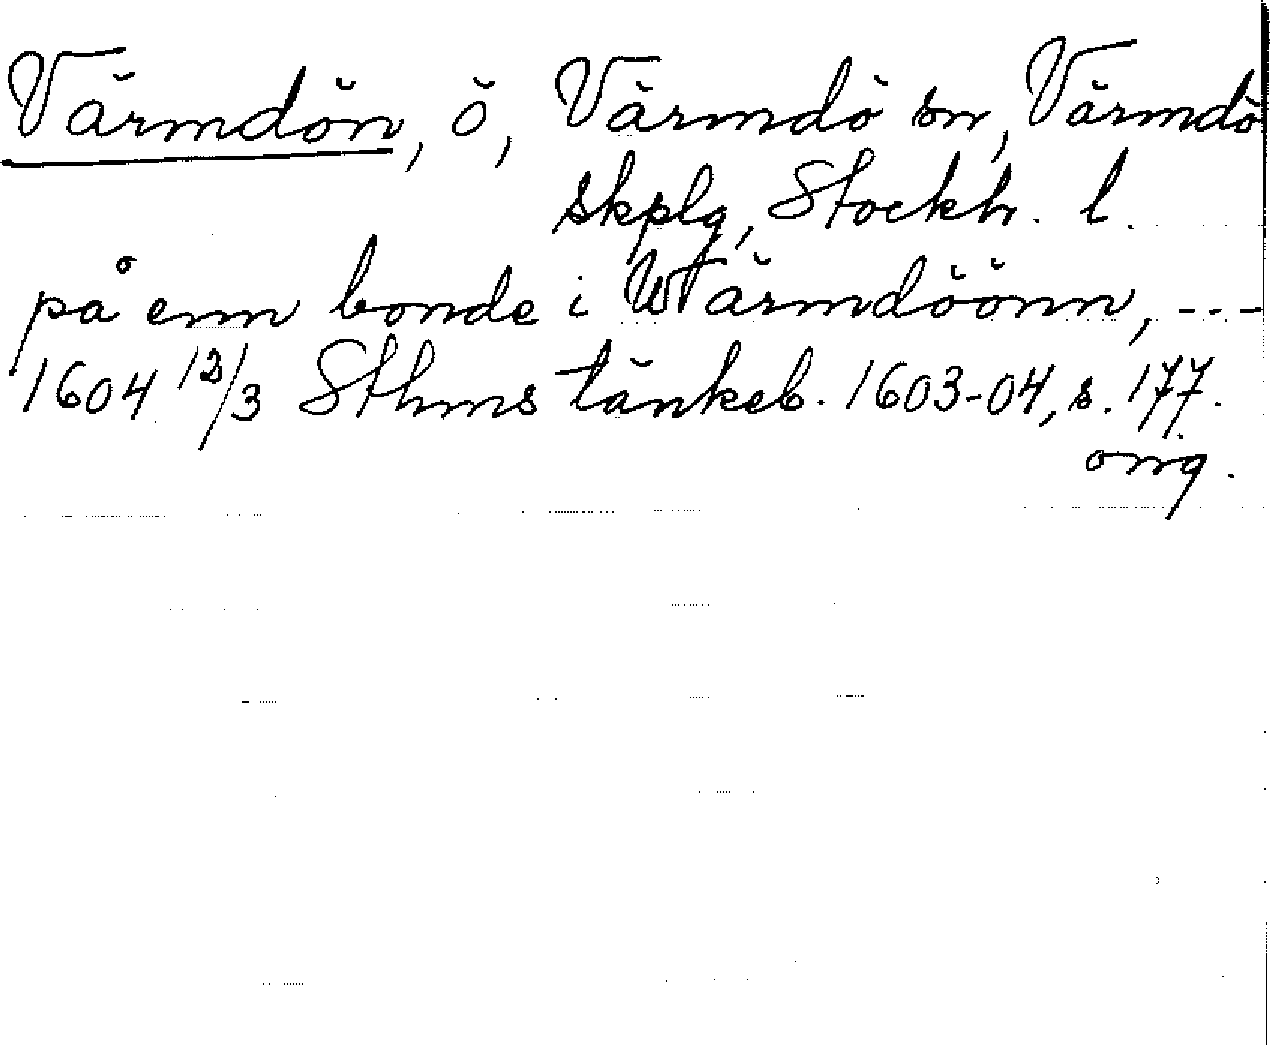 Värmdön, ö, Värmdö sn, Värmdö
skplg, Stockh. l.
på enn bonde i Wärmdöönn, ---
1604 12/3 Sthms tänkeb. 1603-04, s. 177.
orig.